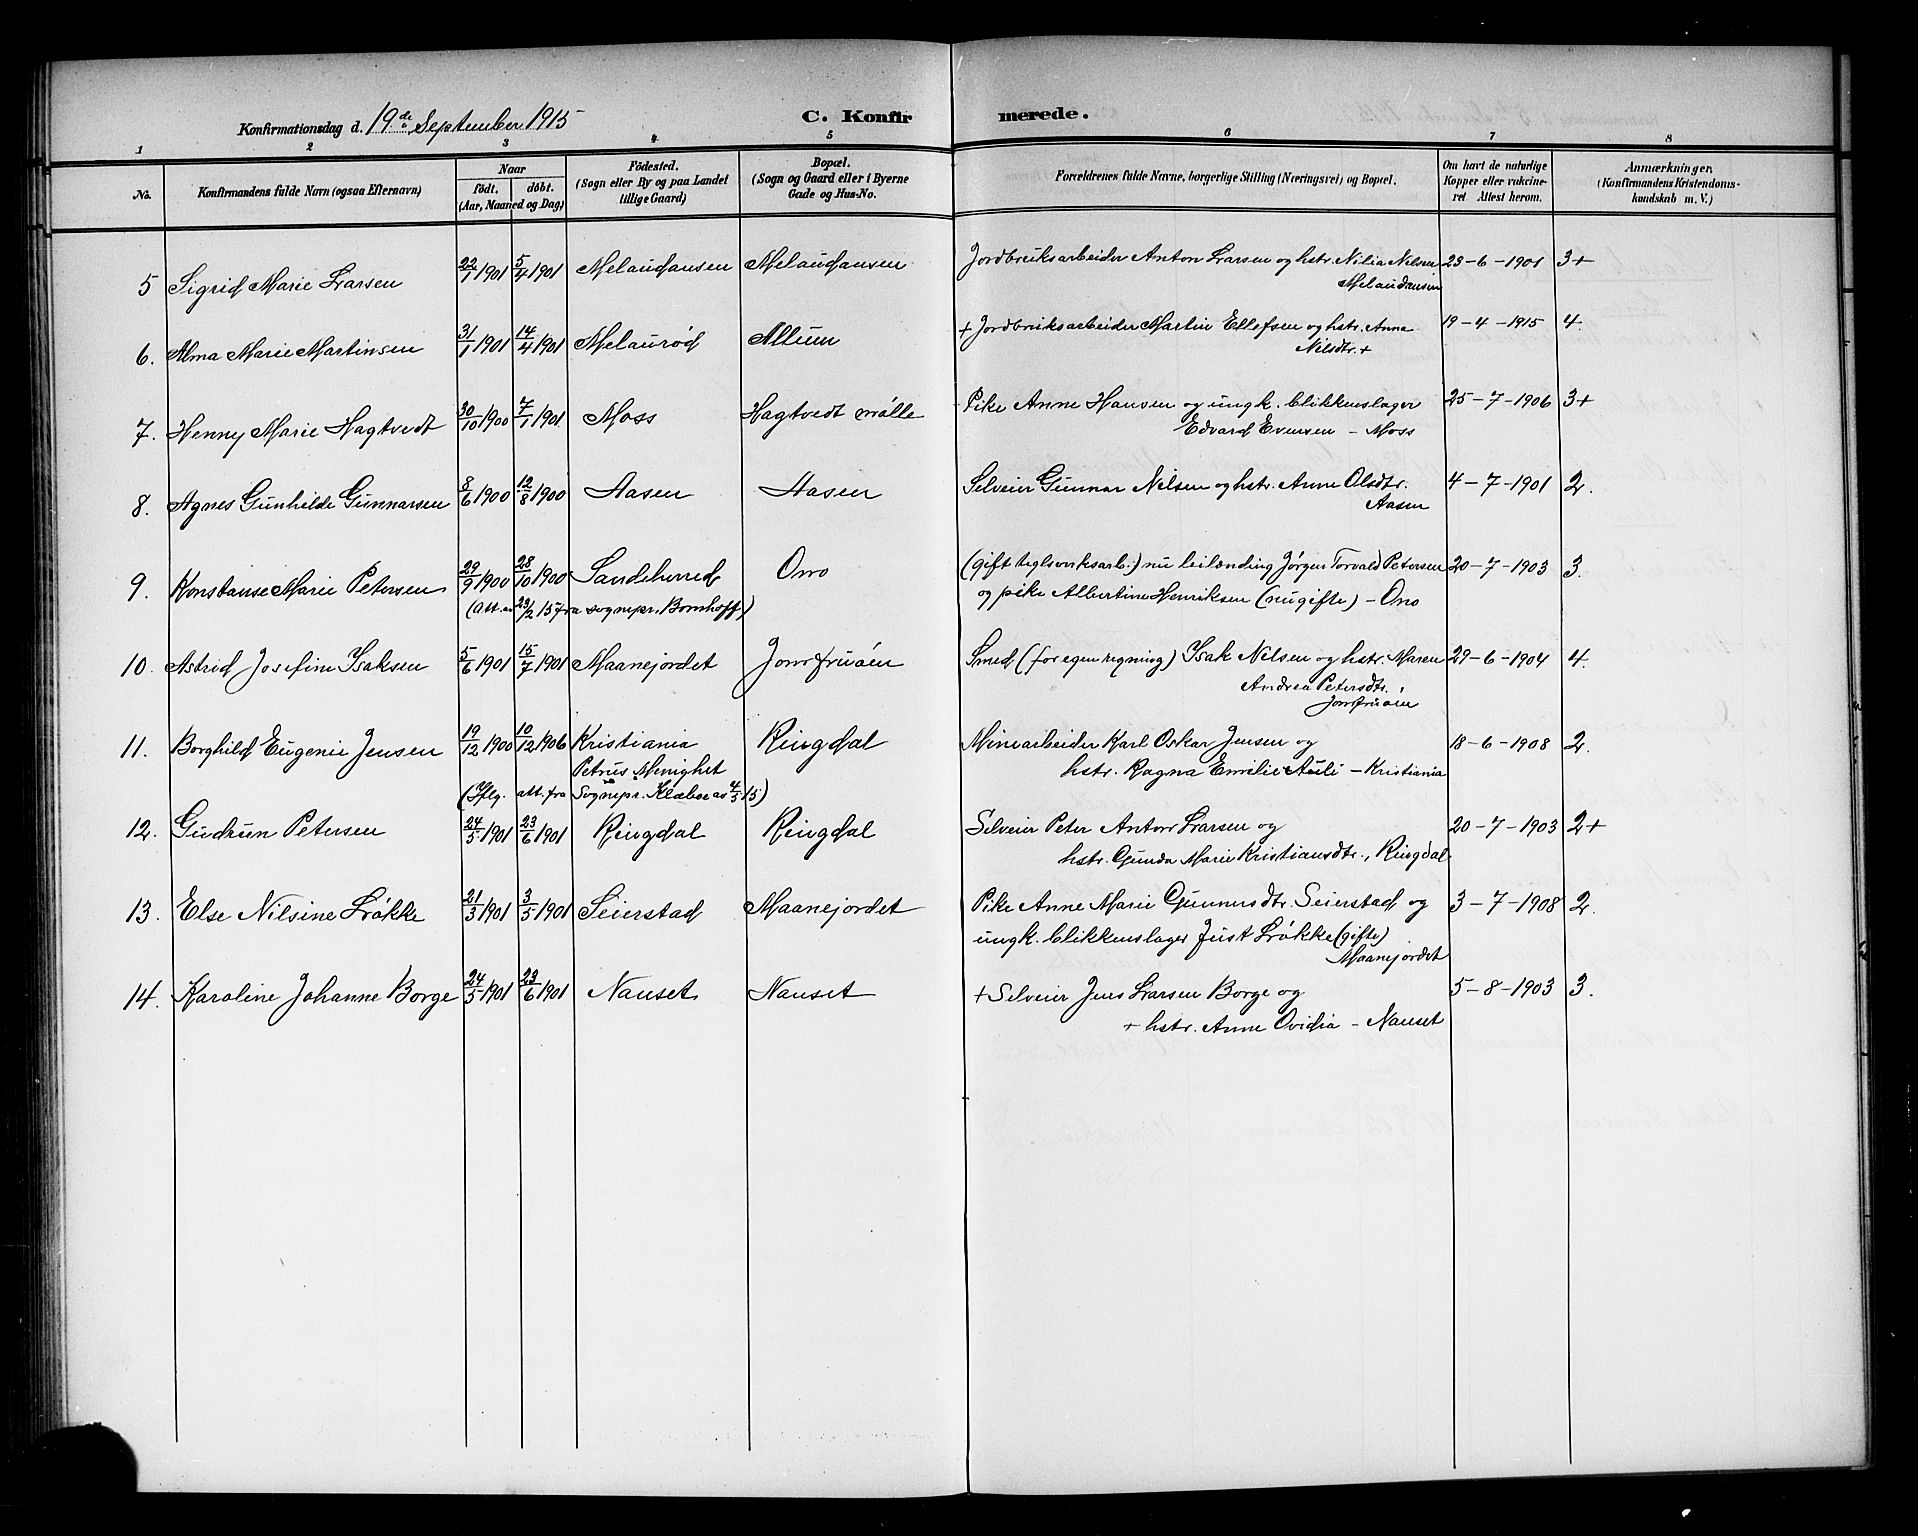 Konfirmationsdag d. 19de September 1915
C. Konfirmerede.
1 2 3 4 5 6 7 8
No.
Konfirmandens fulde Navn (ogsaa Efternavn)
Naar
födt. döbt.
(Aar, Maaned og Dag)
Födested.
(Sogn eller By og paa Landet
tillige Gaard)
Bopæl.
(Sogn og Gaard eller i Byerne
Gade og Hus-No.
Forældrenes fulde Navne, borgerlige Stilling (Næringsvei) og Bopæl.
Om havt de naturlige
Kopper eller vakcine-
ret Attest herom.
Anmærkninger,
(Konfirmandens Kristendoms-
kundskab m. V.)
5 Sigrid Marie Larsen 22/1 1901 5/4 1901 Melaudansen Melaudansen Jordbruksarbeider Anton Larsen og hstr. Nilia Nilsen 23-6-1901 3+
Melaudansen
6. Alma Marie Martinsen 31/1 1901 14/4 1901 Melaurød Altum + Jordbruksarbeider Martin Ellefsen og hstr. Anna 19-4-1915 4.
Nilsdtr. +
7. Henny Marie Hagtvedt 30/10 1900 7/1 1901 Moss Hagtvedt mølle Pike Anne Hansen og ungk. blikkenslager 25-7-1906 3+
Edvard Evensen - Moss
8. Agnes Gunhilde Gunnarsen 8/6 1900 12/8 1900 Aasen Aasen Selveier Gunnar Nilsen og hstr. Anne Olsdtr. 4-7-1901 2.
Aasen
9. Konstanse Marie Petersen 29/9 1900 28/10 1900 Sandeherred Ono (gift teglverksarb.) nu leilending Jörgen Torvald Petersen 20-7-1903 3.
(Att. av 23/2 15 fra sognepr. Bomhoff) og pike Albertine Henriksen (nu gifte) - Ono
10. Astrid Josefine Isaksen 5/6 1901 15/7 1901 Maanejordet Jomfruöen Smed (for egen regning) Isak Nilsen og hstr. Maren 29-6-1904 4.
Andrea Petersdtr.
Jomfruöen
11. Borghild Eugenie Jensen 19/12 1900 10/12 1906 Kristiania Ringdal Minearbeider Karl Oskar Jensen og 18-6-1908 2.
Petrus Menighet hstr. Ragna Emilie Auli - Kristiania
(Iflg. att. fra Sognepr. Klæboe av 4/5 15)
12. Gudrun Petersen 24/5 1901 23/6 1901 Ringdal Ringdal Selveier Peter Anton Larsen og 20-7-1903 2+
hstr. Gunda Marie Kristiansdtr., Ringdal
13. Else Nilsine Løkke 21/3 1901 3/5 1901 Seierstad Maanejordet Pike Anne Marie Gunnersdtr. Seierstad og 3-7-1908 2.
ungk. blikkenslager Just Løkke (gifte)
Maanejordet
14. Karoline Johanne Borge 24/5 1901 23/6 1901 Nauset Nauset + Selveier Jens Larsen Borge og 5-8-1903 3.
+ hstr. Anne Ovidia - Nauset